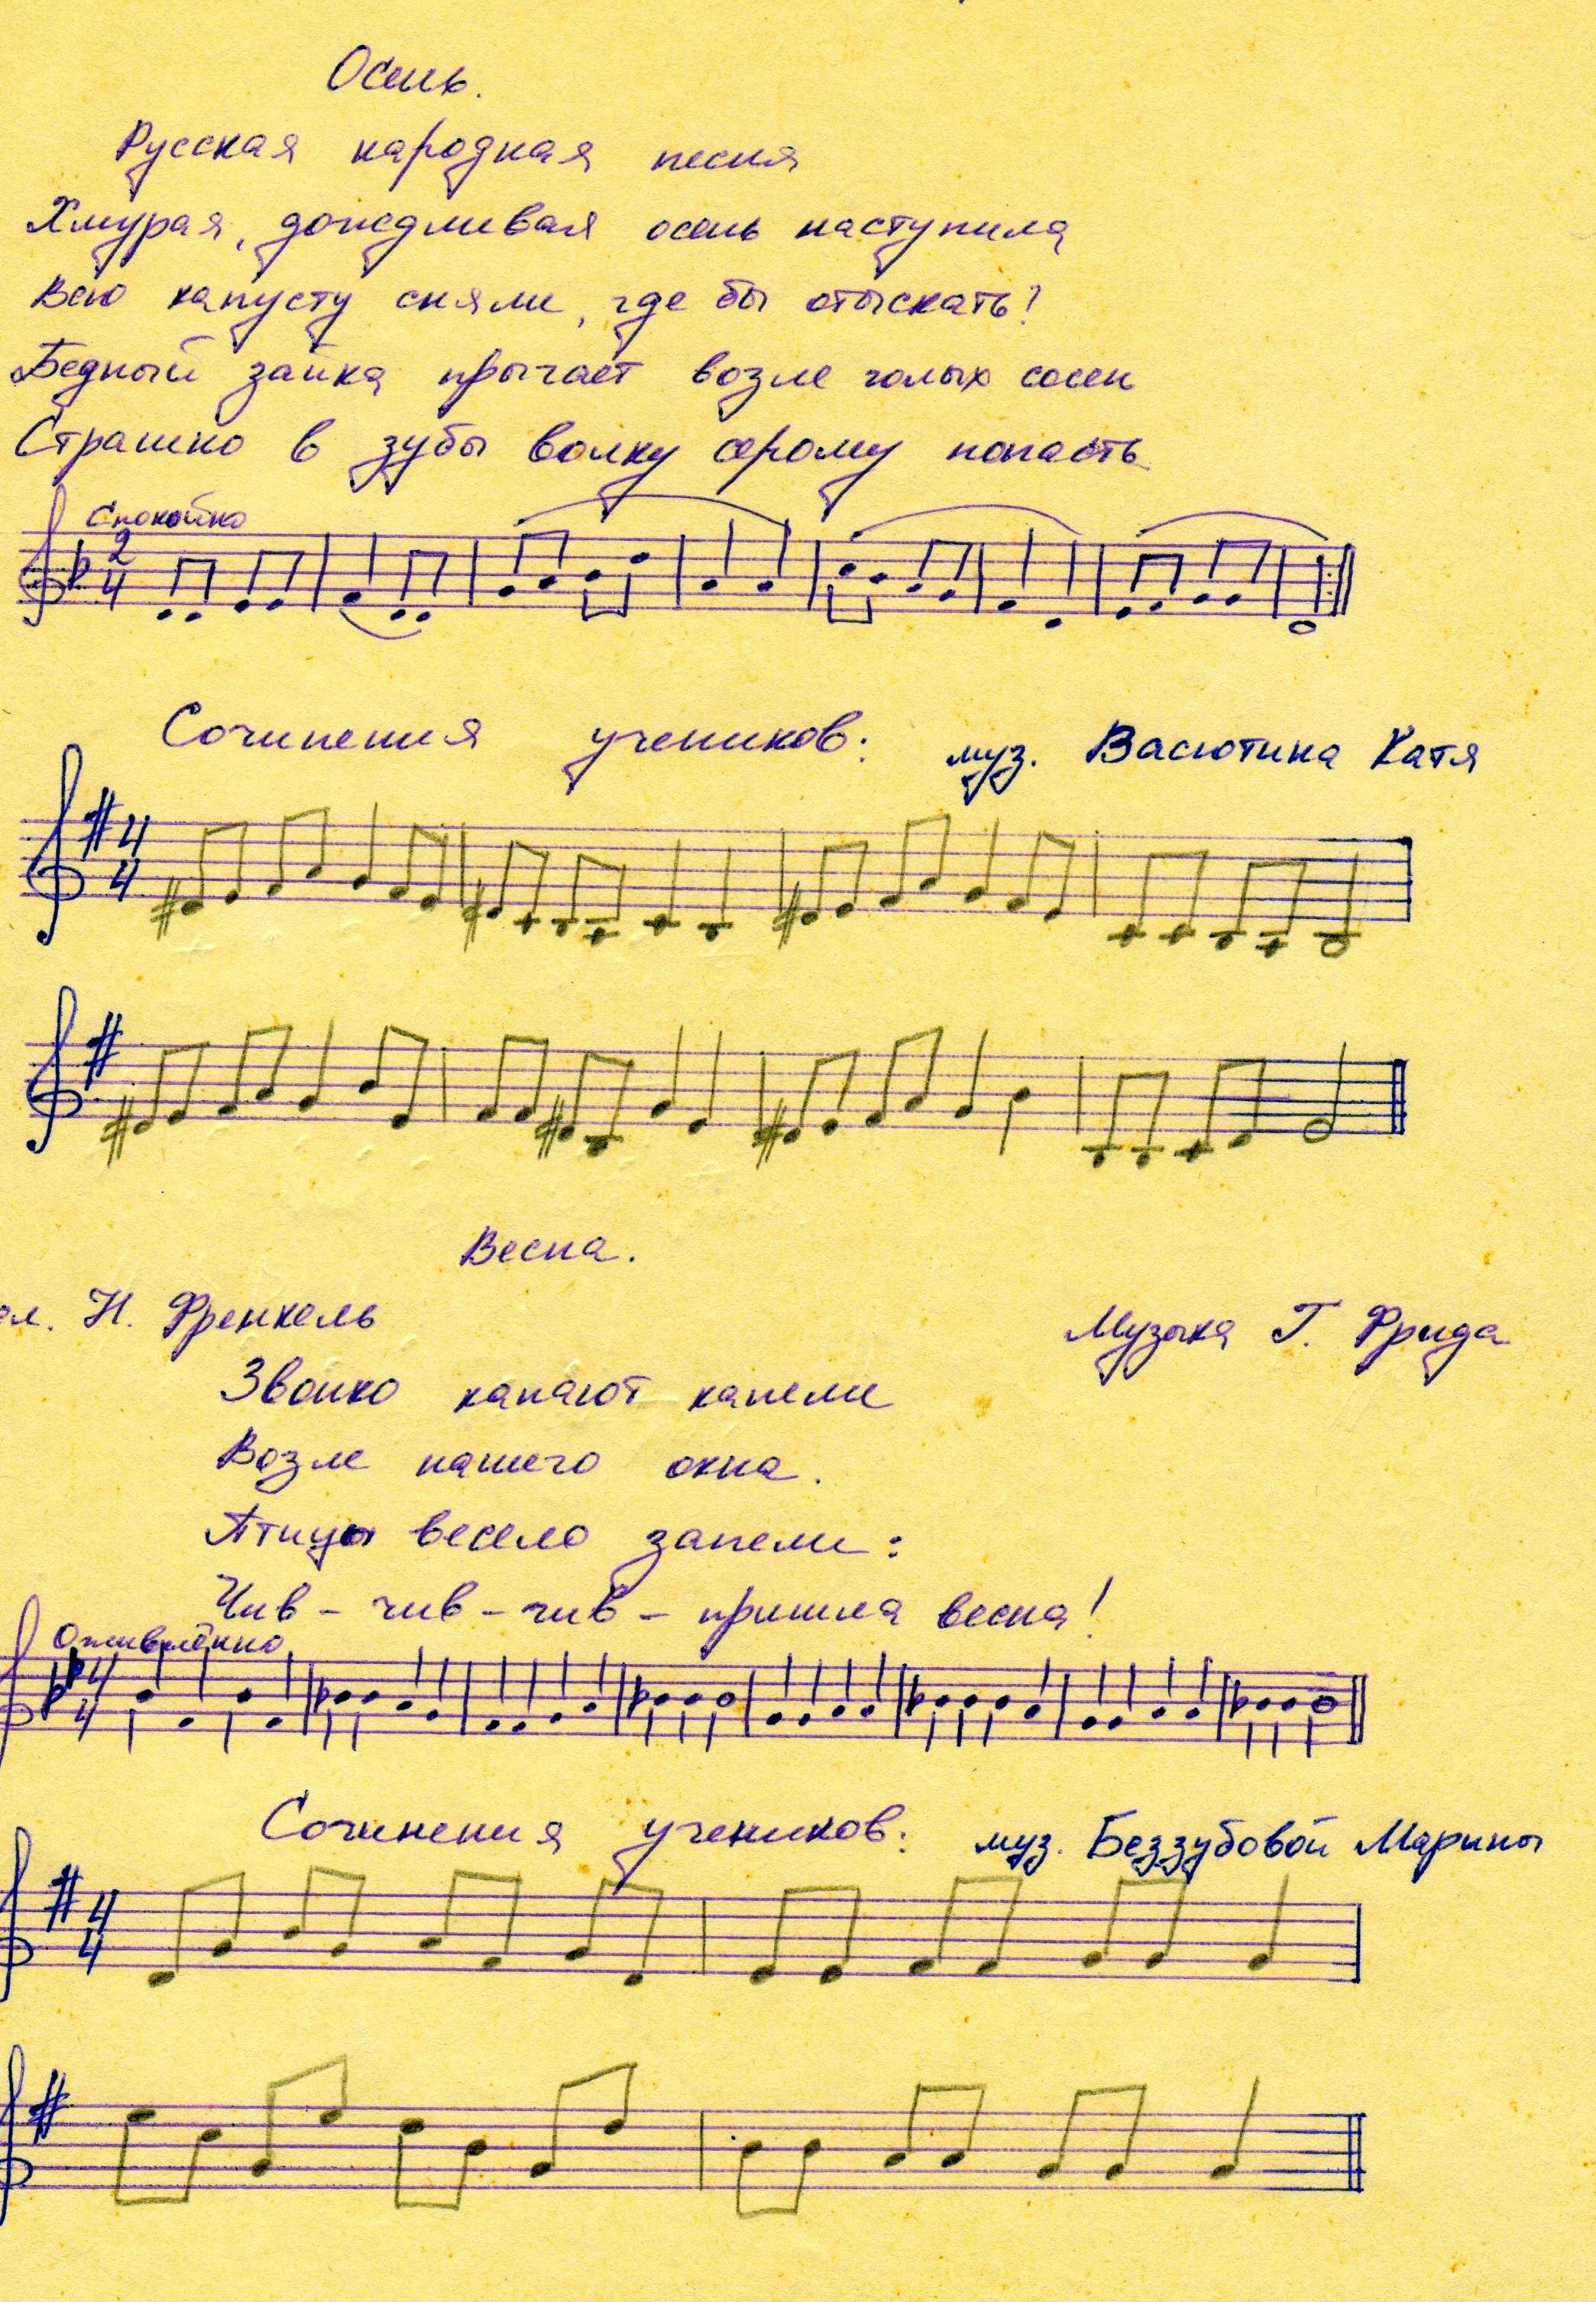 Осень.
Русская народная песня
Хмурая, дождливая осень наступила
Всю капусту сняли, где бы отыскать?
Бедный зайка прыгает возле голых сосен
Страшно в зубы волку серому попасть
Спокойно
2
4
Сочинения учеников: муз. Васютина Катя
4
4
Весна.
сл. Н. Френкель Музыка Г. Фрида
Звонко капают капели
Возле нашего окна.
Птицы весело запели:
Чив - чив - чив - пришла весна!
Оживлённо
4
4
Сочинения учеников: муз. Беззубовой Марины
4
4